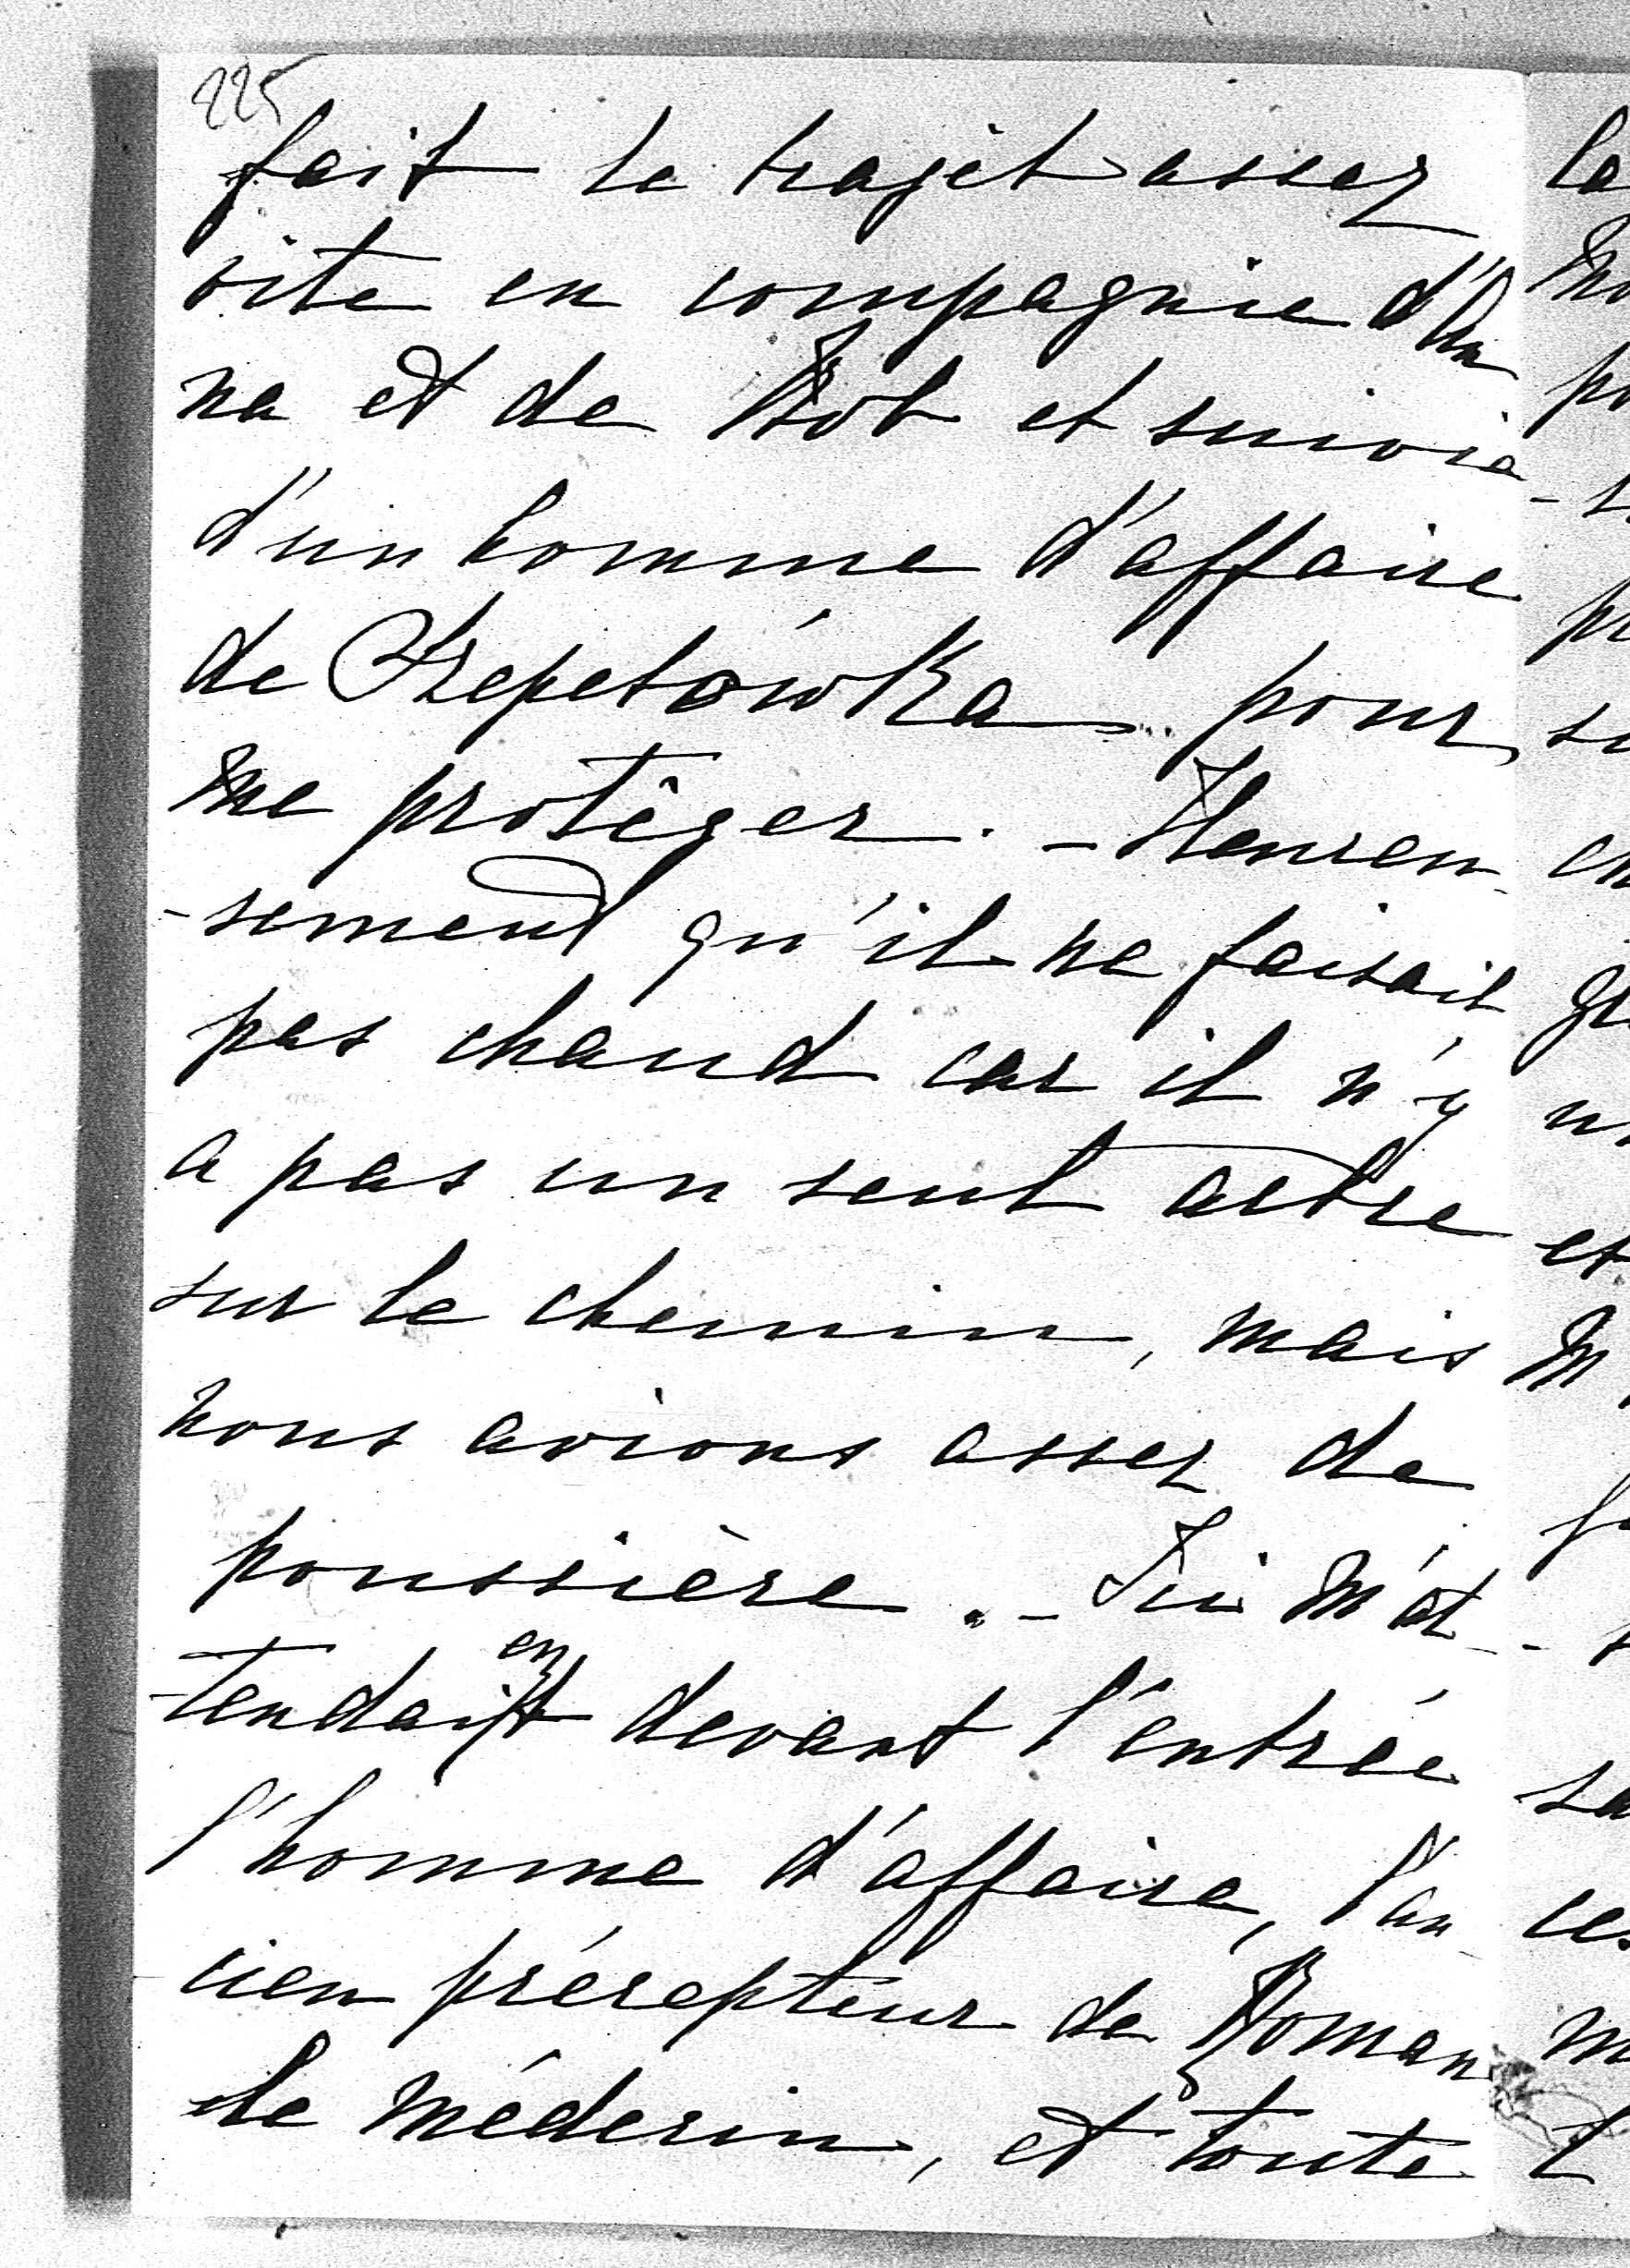 225
fait le trajet assez
vite en compagnie d'An
na et de Rob et suivie
d'un homme d'affaire
de Szepetówka pour
me protéger. - Heureu
-sement qu'il ne faisait
pas chaud car il n'y
a pas un seul arbre
sur le chemin, mais
nous avions assez de
poussière. - Ici m'at-
-tendaient devant l'entrée
l'homme d'affaire, l'an
cien précepteur de Roman
le médecin, et toute